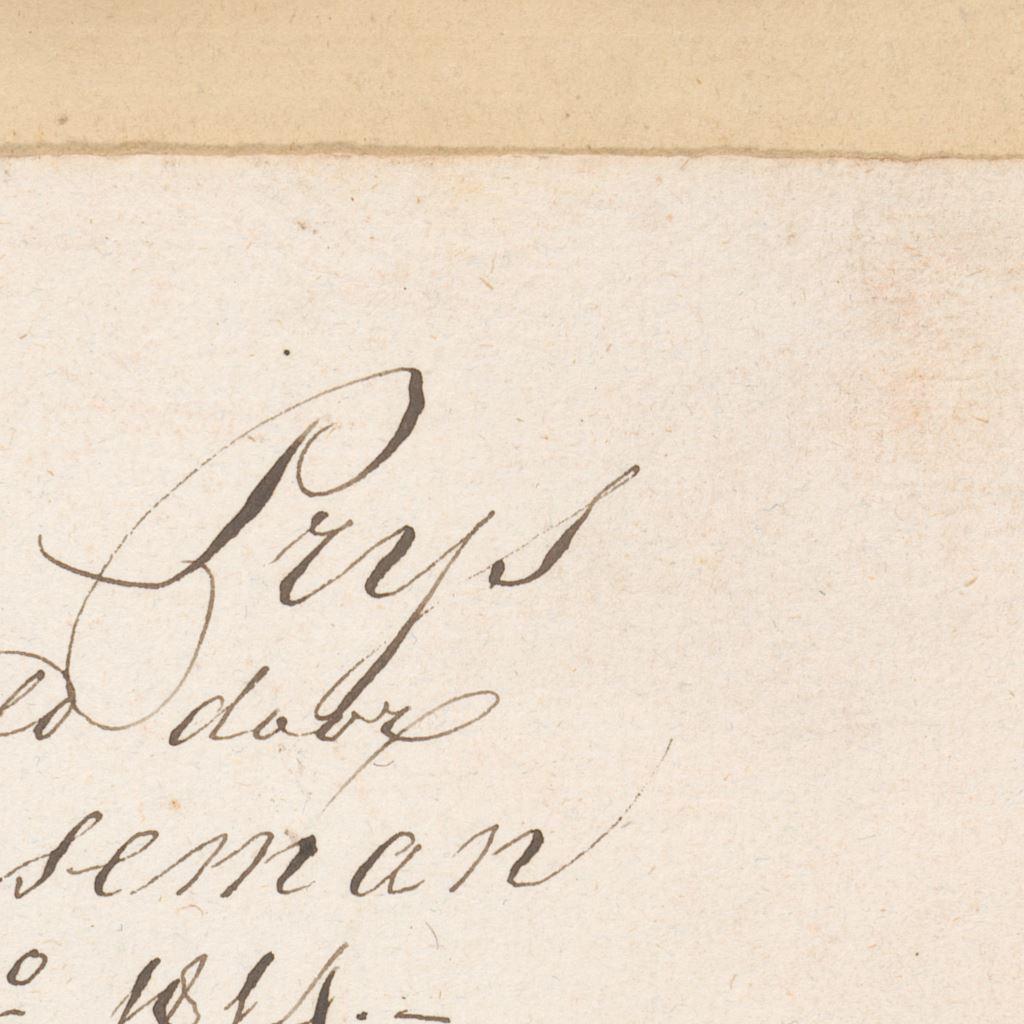 Prys
door
seman
o 181